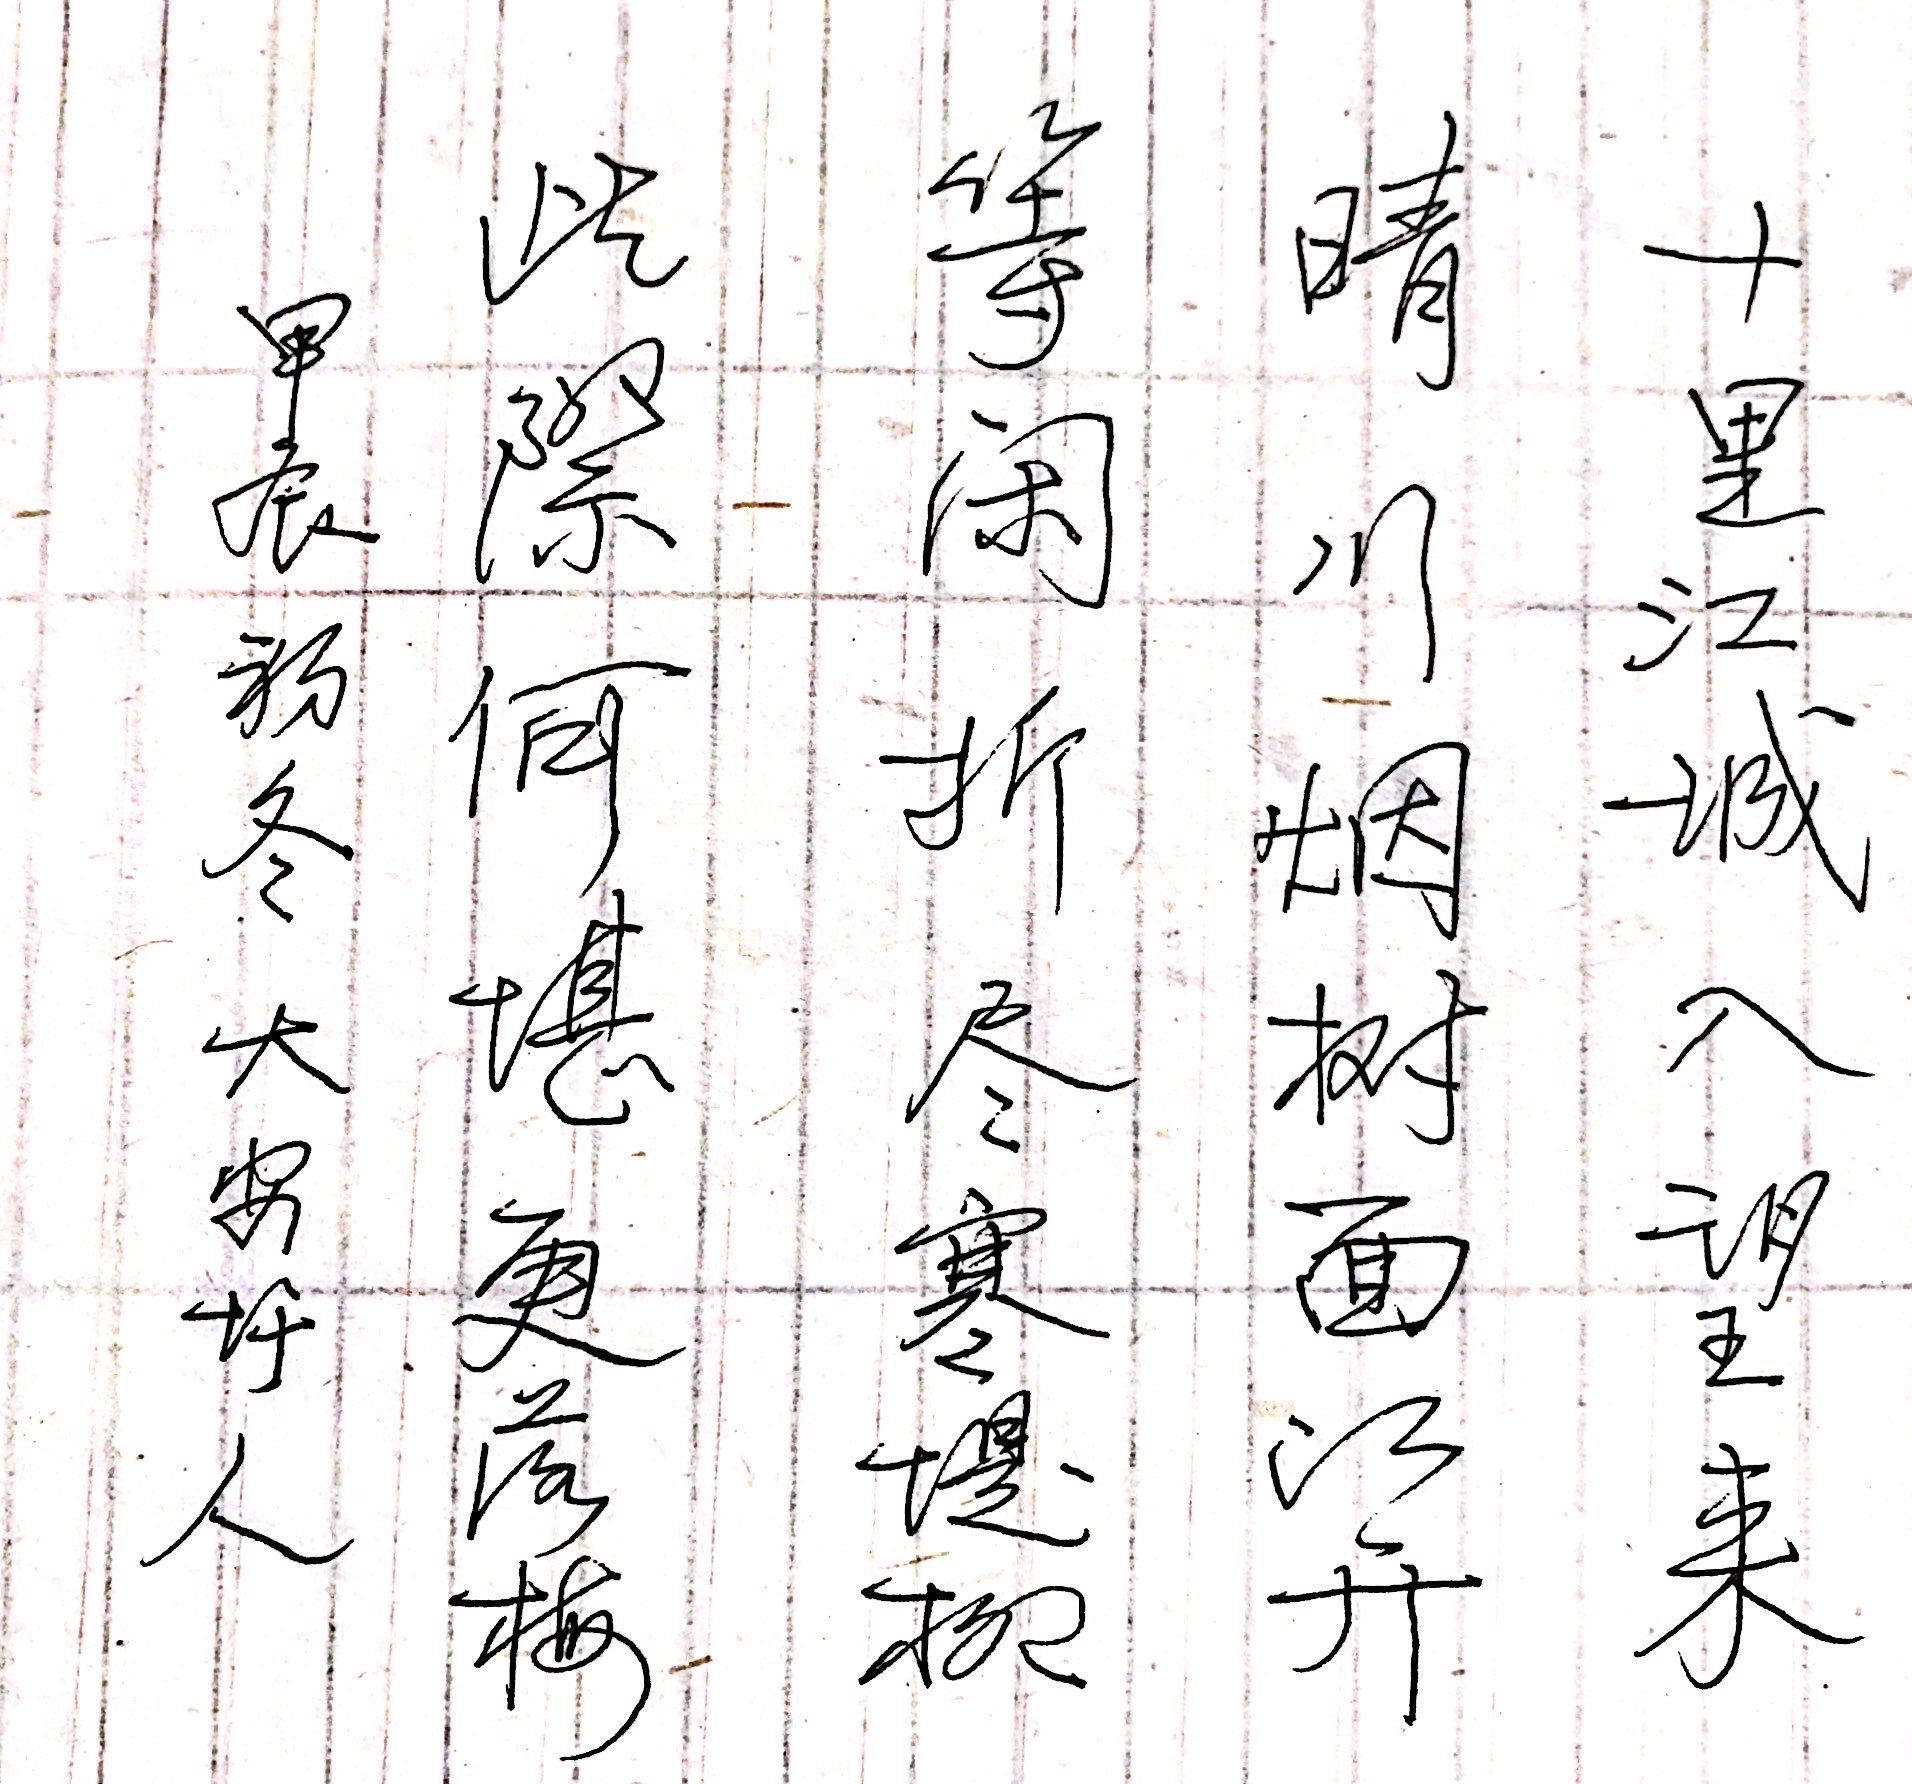 十里江城入望来
晴川烟树面江开
等闲折尽寒堤柳
此际何堪更落梅
甲辰初冬大安圩人